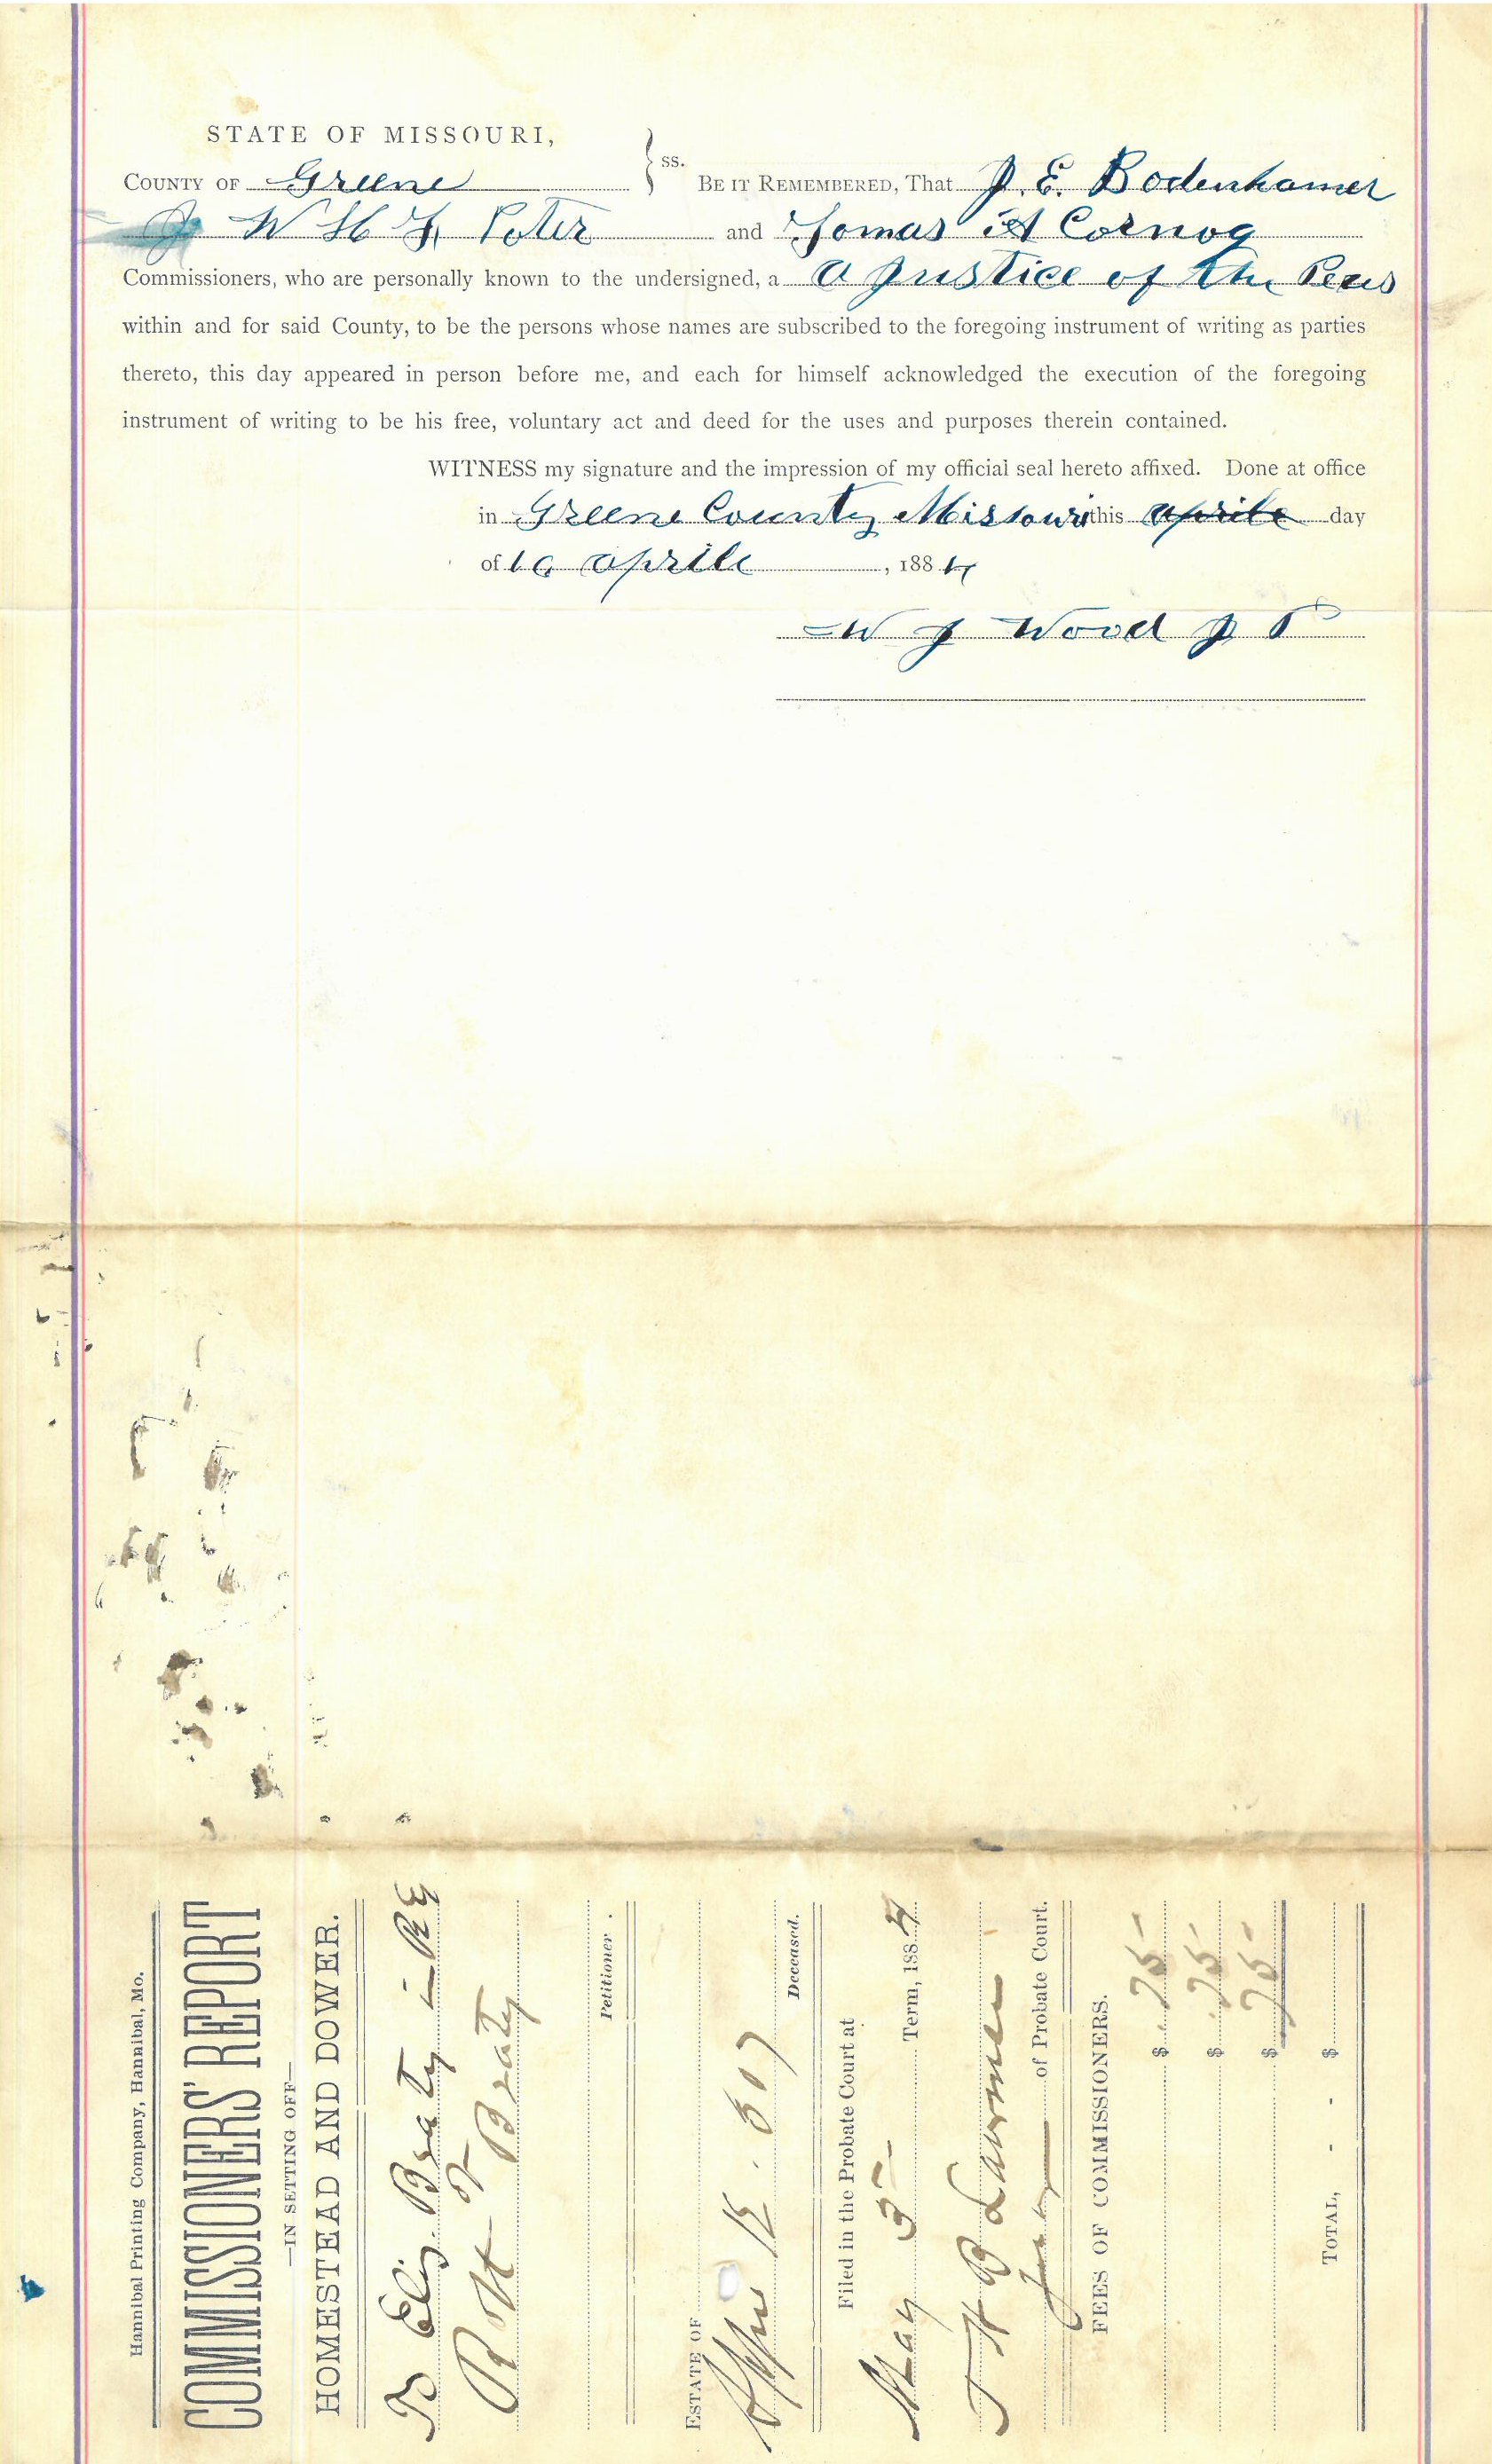 STATE OF MISSOURI,
COUNTY OF Greene } ss. BE IT REMEMBERED, That J. E. Bodenhamer
J W H F Poter and Tomas A Cornog
Commissioners, who are personally known to the undersigned, a a Justice of the Peas
within and for said County, to be the persons whose names are subscribed to the foregoing instrument of writing as parties
thereto, this day appeared in person before me, and each for himself acknowledged the execution of the foregoing
instrument of writing to be his free, voluntary act and deed for the uses and purposes therein contained.
WITNESS my signature and the impression of my official seal hereto affixed. Done at office
in Greene County Missouri this aprile day
of 10 aprile, 1884
W J Wood J P
Hannibal Printing Company, Hannibal, Mo.
COMMISSIONERS' REPORT
—IN SETTING OFF—
HOMESTEAD AND DOWER.
To Eliz. Braty in RE
R H Braty
Petitioner .
ESTATE OF
12 . 307
Deceased.
Filed in the Probate Court at
May 5 Term, 1884
J H B Lawrence
of Probate Court.
FEES OF COMMISSIONERS.
$ .75
$ .75
$ 75
TOTAL, - - $